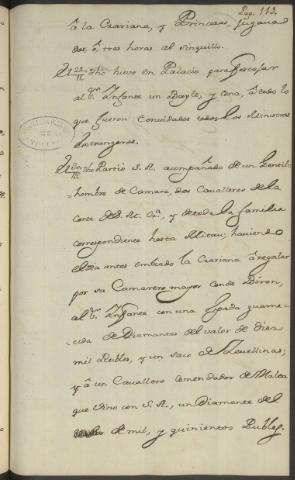 Pag. 112.
à la Czariana, y Princesas, jugando
dos, ò tres horas al vinguillo.
El 22 dho huvo en Palacio para festejar
al Sr. Infante un Bayle, y Cena, à todo lo
que fueron Convidados todos los Ministros
Estrangeros.
Partiò S. A. acompañado de un Gentil
hombre de Camara, dos Cavalleros de la
corte del
correspondiente hasta Mitau; haviendo
el dia antes embiado la Czariana à regalar
por su Camarero mayor conde Biron,
al Sr. Infante con una Espada guarne-
cida de Diamantes del valor de diez
mil Rublos, y un saco de Zevellinas;
y à un Cavallero Comendador de Malta
que vino con S. A., un Diamante del
de mil, y quinientos Rublos.